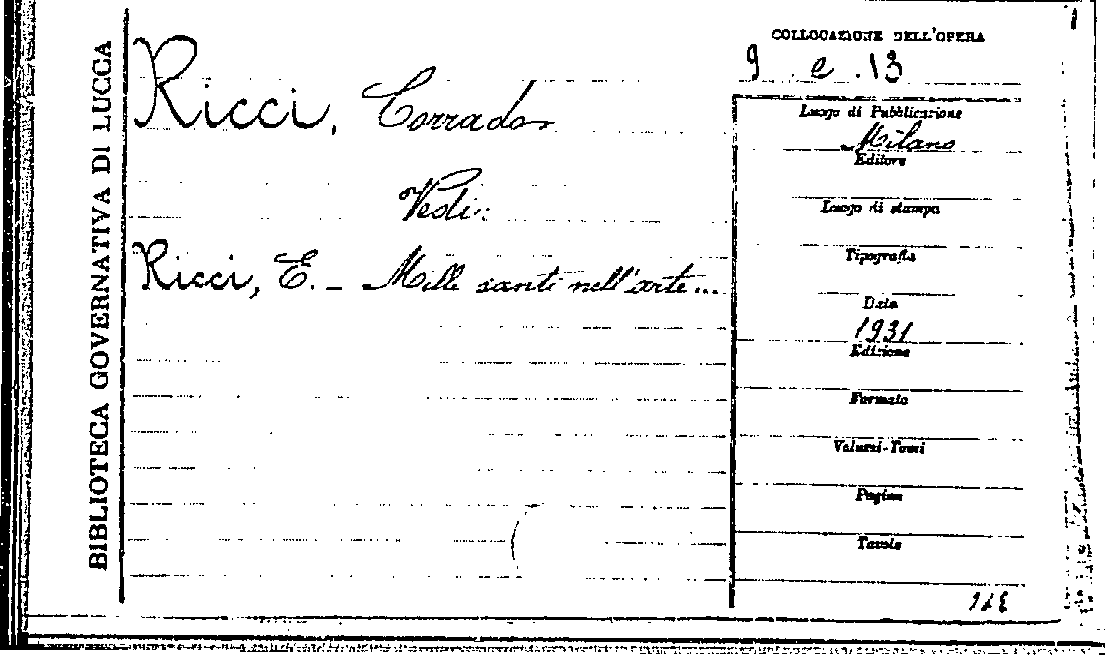 BIBLIOTECA GOVERNATIVA DI LUCCA
Ricci, Corrado
Vedi:
Ricci, E. - Mille santi nell'arte...
COLLOCAZIONE DELL'OPERA
9 e. 13
Luogo di Pubblicazione
Milano
Editore
Luogo di stampa
Tipografia
Data
1931
Edizione
Formato
Volumi-Tomi
Pagine
Tavole